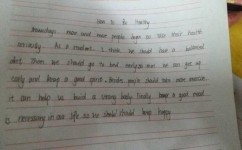 How To Be Healthy
Nowadays, more and more people begin to take their health
seriously. As a student, I think we should have a balanced
diet. Then we should go to bed early, so we can get up
early and keep a good spirit. Besides, people should take more exercise
it can help us build a strong body. Finally, keep a good mood
is necessary in our life, so we should should keep happy